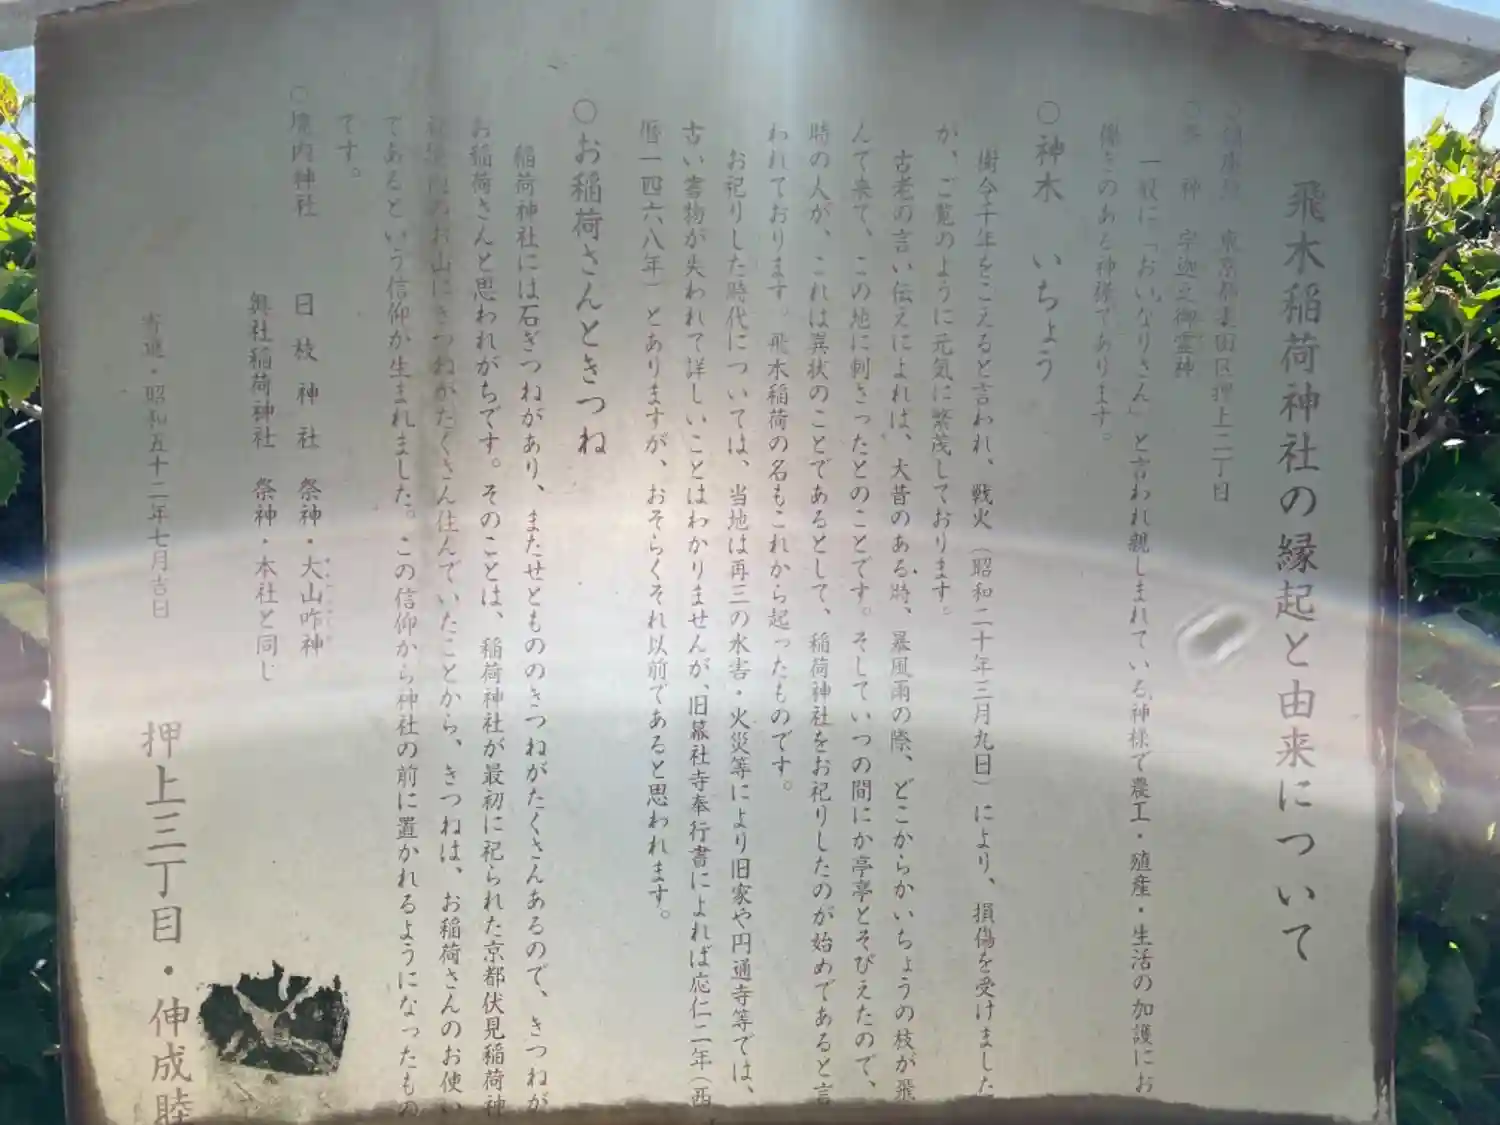 飛木稲荷神社の縁起と由来について
東京都墨田区押上二丁目
神　宇迦之御霊神
一般に「おいなりさん」と言われ親しまれている神様で農工・殖産・生活の加護にお
働きのある神様であります。
○神木　いちょう
樹令千年をこえると言われ、戦火（昭和二十年三月九日）により、損傷を受けました
が、ご覧のように元気に繁茂しております。
古老の言い伝えによれば、大昔のある時、暴風雨の際、どこからかいちょうの枝が飛
んで来て、この地に刺さったとのことです。そしていつの間にか亭亭とそびえたので、
時の人が、これは異状のことであるとして、稲荷神社をお祀りしたのが始めであると言
われております。飛木稲荷の名もこれから起ったものです。
お祀りした時代については、当地は再三の水害・火災等により旧家や円通寺等では、
古い書物が失われて詳しいことはわかりませんが、旧幕社寺奉行書によれば応仁二年（西
暦一四六八年）とありますが、おそらくそれ以前であると思われます。
○お稲荷さんときつね
稲荷神社には石ぎつねがあり、またせともののきつねがたくさんあるので、きつねが
お稲荷さんと思われがちです。そのことは、稲荷神社が最初に祀られた京都伏見稲荷神
のお山にきつねがたくさん住んでいたことから、きつねは、お稲荷さんのお使い
であるという信仰が生まれました。この信仰から神社の前に置かれるようになったもの
です。
○境内神社　日枝神社　祭神・大山咋神
興社稲荷神社　祭神・本社と同じ
寄進・昭和五十二年七月吉日
押上三丁目・伸成睦